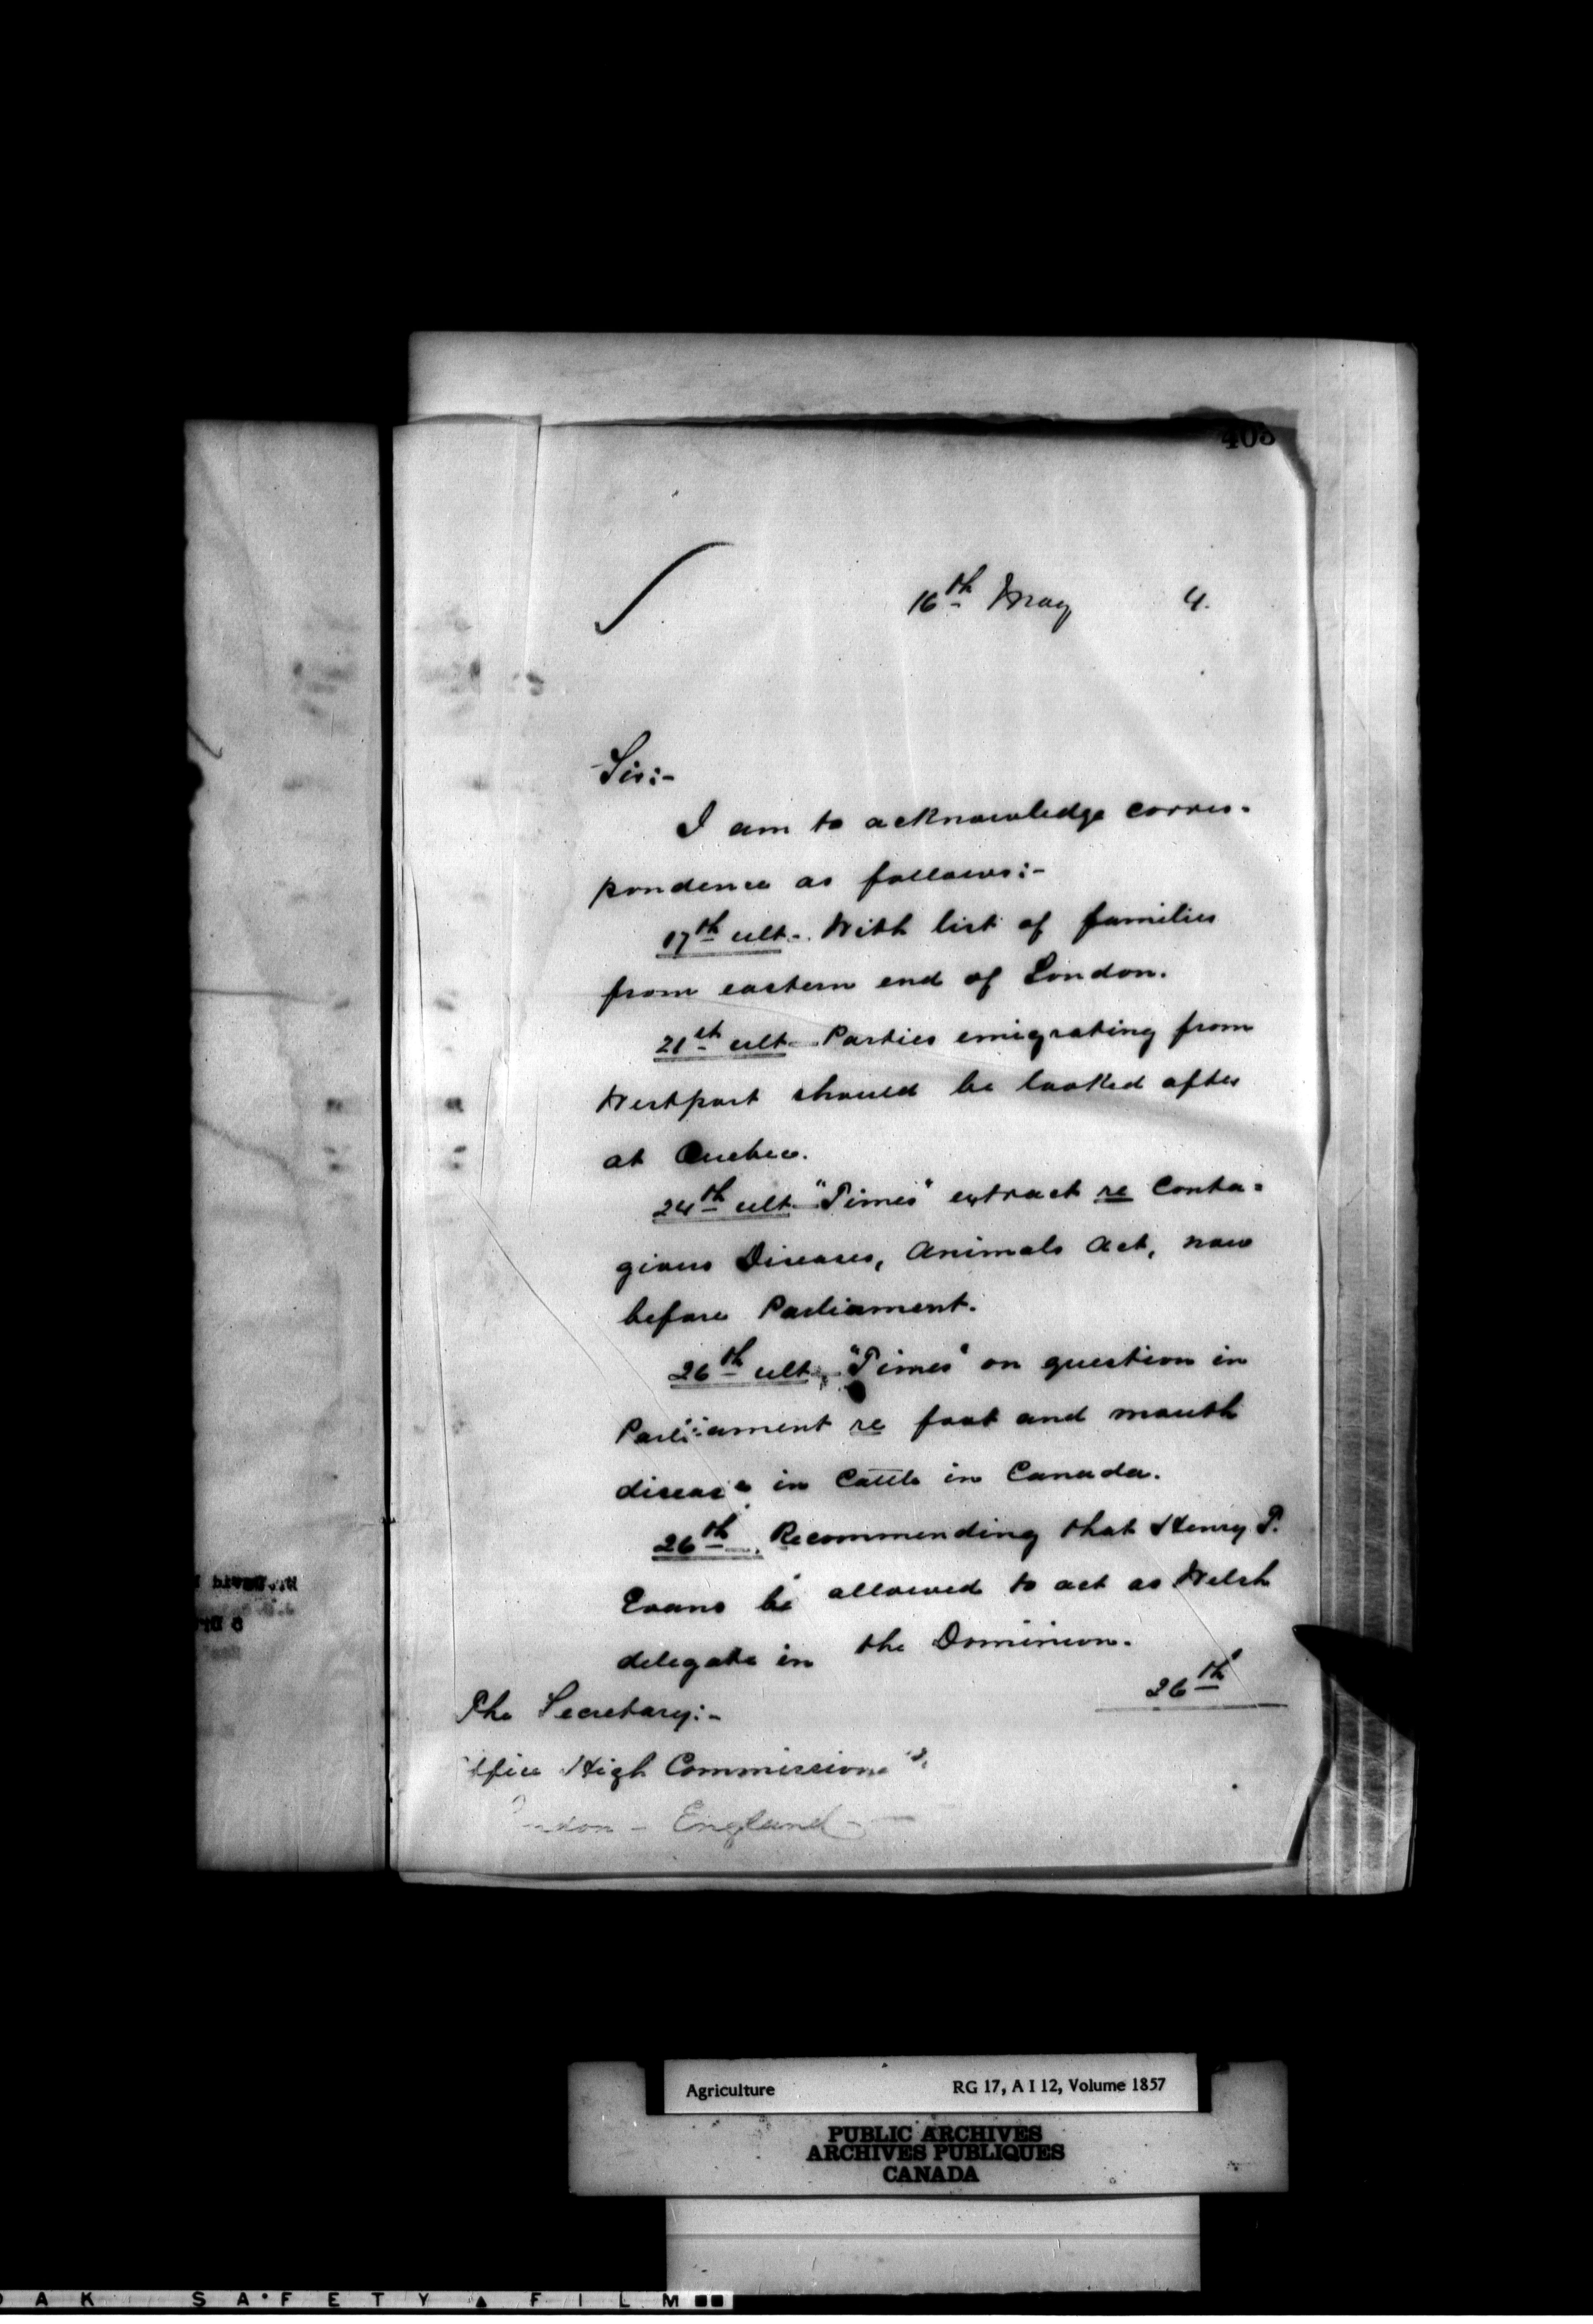 403
16th May 4.
Sir:-
I am to acknowledge corres-
pondence as follows:-
17th ult-. With list of families
from eastern end of London.
21st ult- Parties emigrating from
Westport should be looked after
at Quebec.
24th ult- "Times" extract re Conta=
gious Diseases, Animals Act, now
before Parliament.
26th ult. "Times" on question in
Parliament re foot and mouth
disease in Cattle in Canada.
26th. Recommending that Henry T.
Evans be allowed to act as Welsh
delegate in the Dominion.
26th
The Secretary:-
Office High Commissioner's,
London - England -
Agriculture RG 17, A I 12, Volume 1857
PUBLIC ARCHIVES
ARCHIVES PUBLIQUES
CANADA
SAFETY FILM